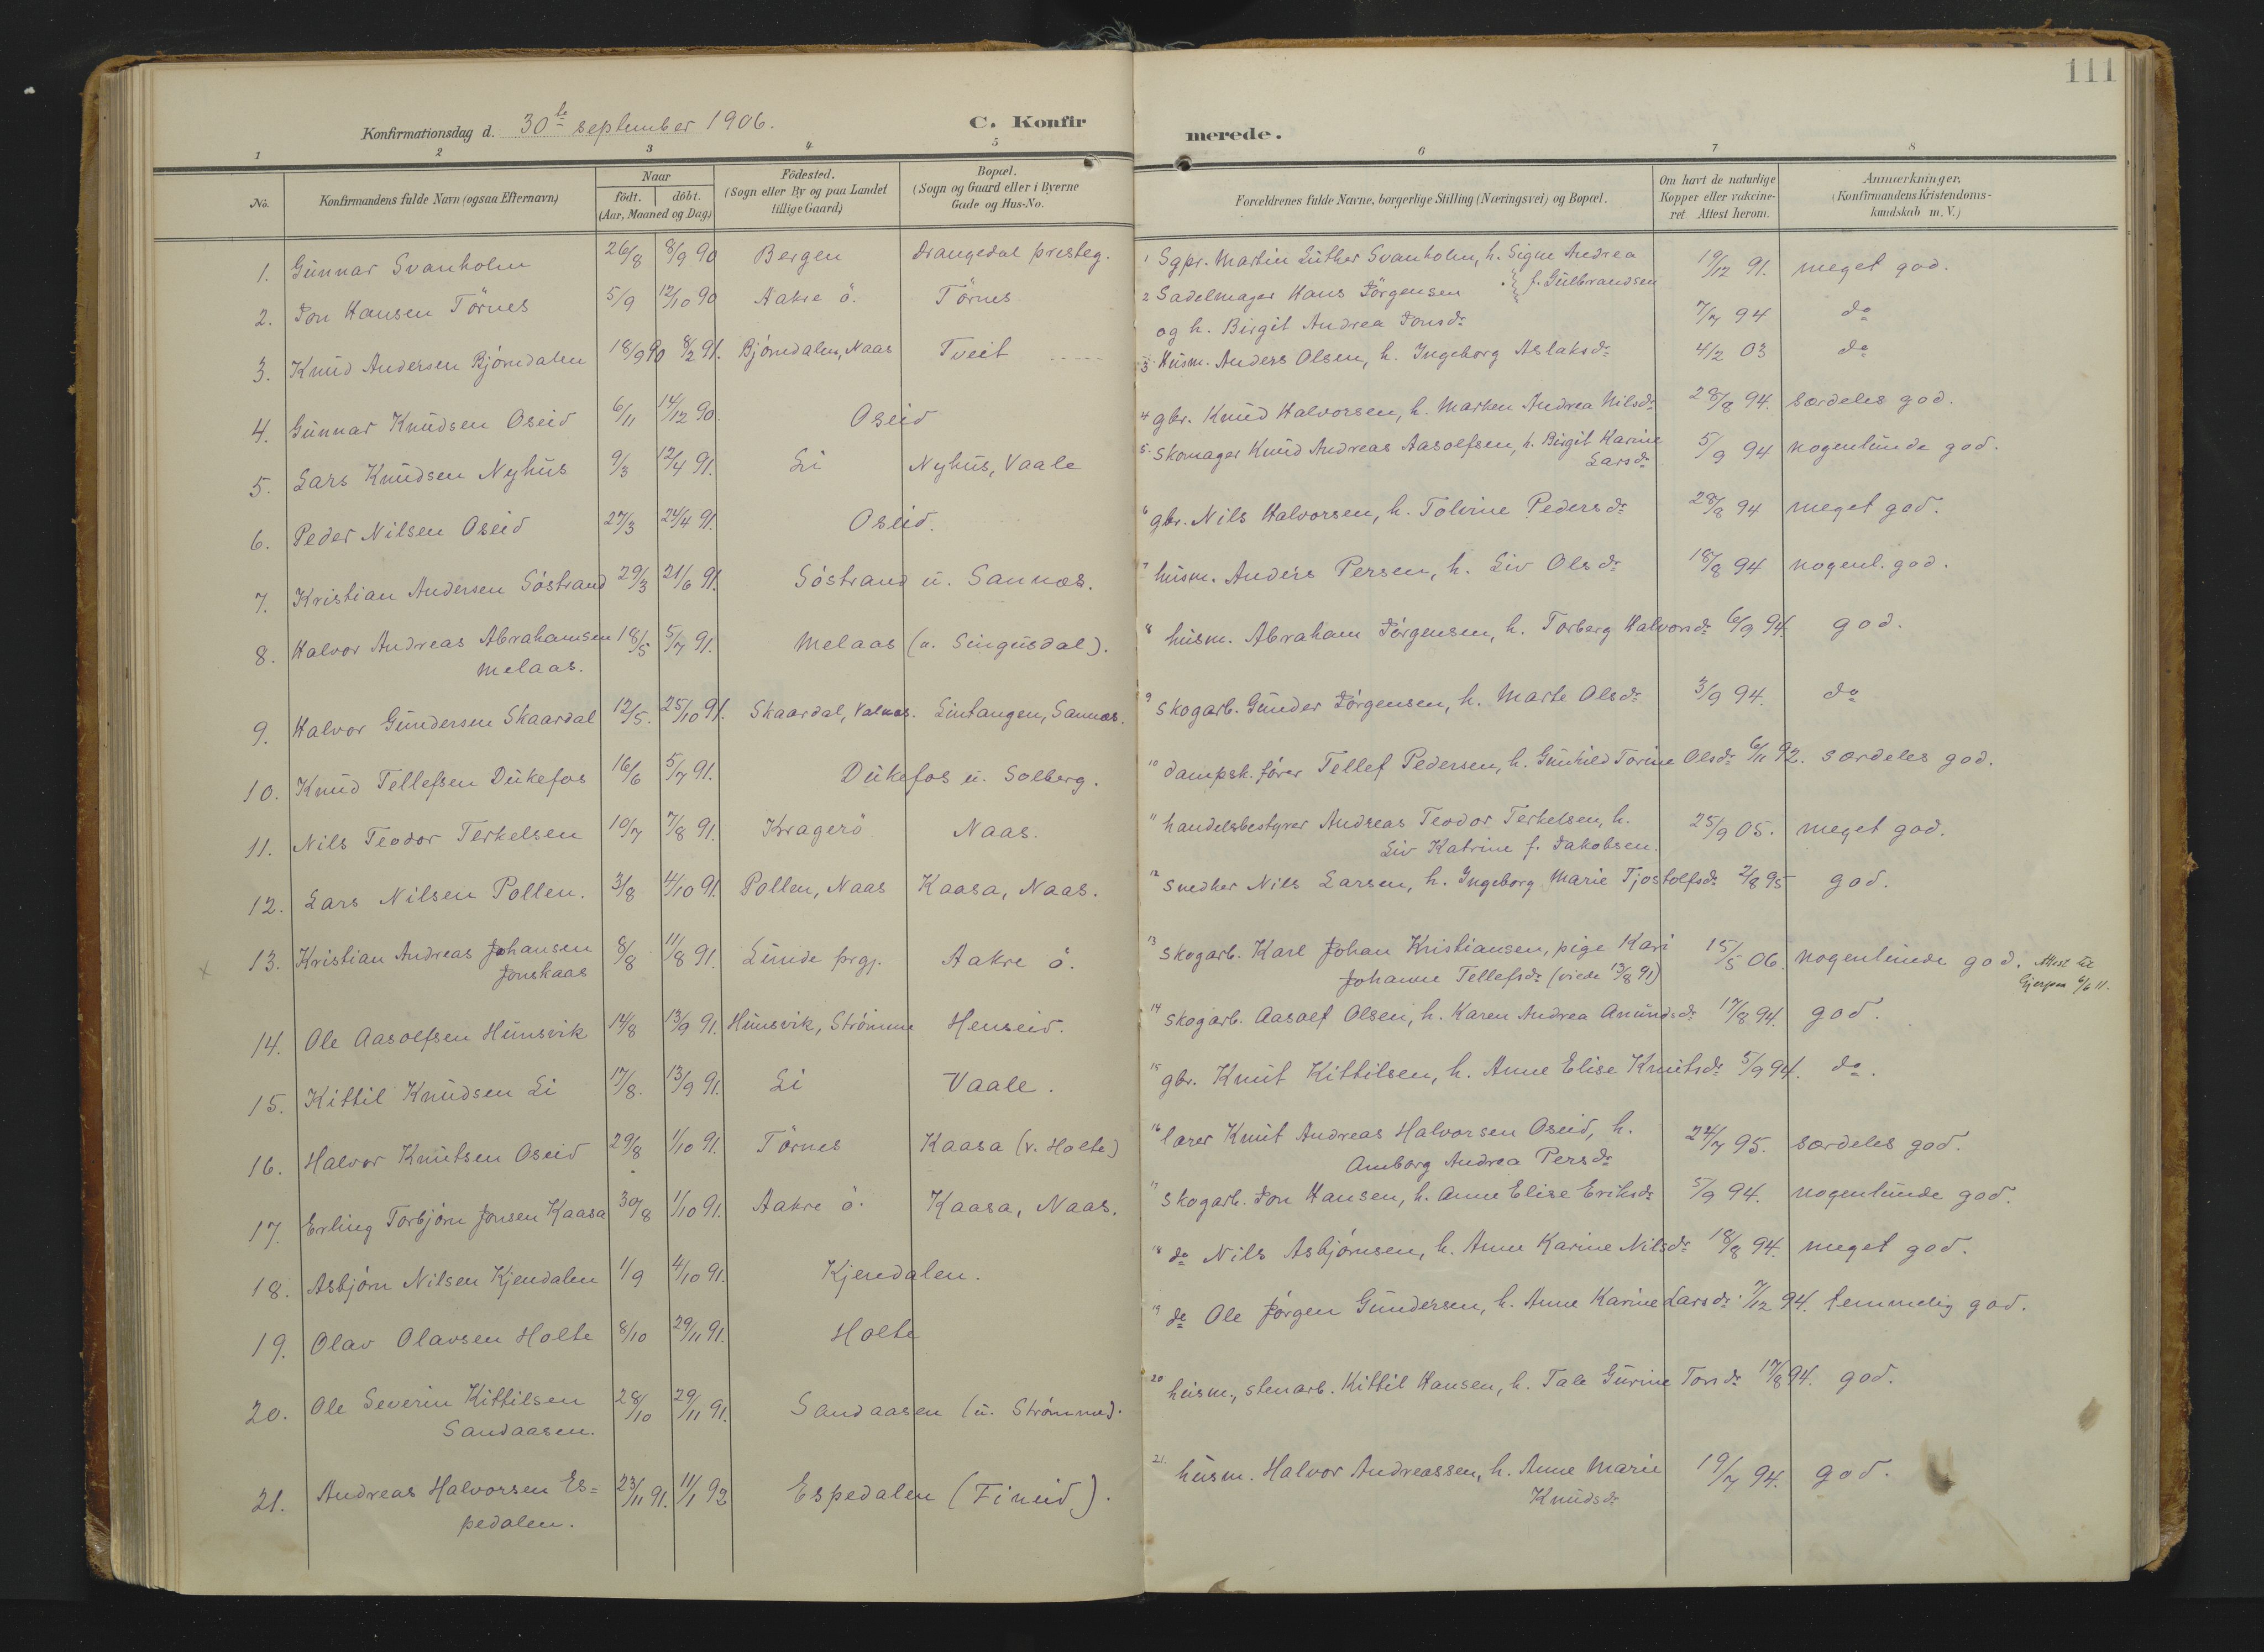 111
Konfirmationsdag d. 30te september 1906.
C. Konfir
merede.
1 2 3 4 5 6 7 8
No.
Konfirmandens fulde Navn (ogsaa Efternavn)
Naar
födt. döbt.
(Aar, Maaned og Dag)
Födested.
(Sogn eller By og paa Landet
tillige Gaard)
Bopæl.
(Sogn og Gaard eller i Byerne
Gade og Hus-No.
Forældrenes fulde Navne, borgerlige Stilling (Næringsvei) og Bopæl.
Om havt de naturlige
Kopper eller vakcine-
ret Attest herom.
Anmærkninger.
(Konfirmandens Kristendoms-
kundskab m. V.)
1. Gunnar Svanholm 26/8 8/9 90 Bergen Drangedal presteg. 1 Sgpr. Martin Luther Svanholm, h. Signe Andrea 19/12 91. meget god.
f. Gulbrandsen
2. Jon Hansen Törnes 5/9 12/10 90 Aakre ö. Törnes 2 Sadelmager Hans Jörgensen
og h. Birgit Andrea Jonsdr 7/7 94 do
3. Knud Andersen Bjórndalen 18/9 90 8/2 91. Bjórndalen, Naas Tveit 3. Husm. Anders Olsen, h. Ingeborg Aslaksdr 4/2 03 do
4. Gunnar Knudsen Oseid 6/11 14/12 90. Oseid 4 gbr. Knud Halvorsen, h. Marken Andrea Nilsdr 28/8 94. særdeles god.
5. Lars Knudsen Nyhus 9/3 12/4 91. Li Nyhus, Vaale 5. Skomager Knud Andreas Aasolfsen, h. Birgit Karine 5/9 94 nogenlunde god.
Larsdr
6. Peder Nilsen Oseid 27/3 24/4 91. Oseid. 6 gbr. Nils Halvorsen, h. Tolvine Pedersdr 28/8 94 meget god.
7. Kristian Andersen Sóstrand 29/3 21/6 91. Sóstrand u. Sannæs. 7 husm. Anders Persen, h. Liv Olsdr 18/8 94 nogenl. god.
8. Halvor Andreas Abrahamsen 18/5 5/7 91. Melaas (u. Singusdal). 8 husm. Abraham Jörgensen, h. Torberg Halvorsdr 6/9 94. god.
Melaas.
9. Halvor Gundersen Skaardal 12/5. 25/10 91. Skaardal, Valnæs. Lintangen, Sannæs. 9 Skogarb. Gunder Jörgensen, h. Marte Olsdr 3/9 94. do
10. Knud Tellefsen Dukefos 16/6 5/7 91. Dukefos u. Solberg. 10 dampsk. fórer Tellef Pedersen, h. Gunhild Torine Olsdr 6/11 92. særdeles god.
11. Nils Teodor Terkelsen 10/7 7/8 91. Kragerö Naas. 11 handelsbestyrer Andreas Teodor Terkelsen, h. 25/9 05. meget god.
Liv Katrine f. Jakobsen.
12. Lars Nilsen Pollen. 3/8 4/10 91. Pollen, Naas Kaasa, Naas. 12 snedker Nils Larsen, h. Ingeborg Marie Tjostolfsdr 2/8 95 god.
x 13. Kristian Andreas Johansen 8/8 11/8 91. Lunde prgj. Aakre ö. 13 skogarb. Karl Johan Kristiansen, pige Kari 15/5 06. nogenlunde god. Attest til
Jonskaas Johanne Tellefsdr (viede 13/8 91) Gjerpen 6/6 11.
14. Ole Aasolfsen Hunsvik 14/8 13/9 91. Hunsvik, Strómme Henseid. 14 skogarb. Aasolf Olsen, h. Karen Andrea Anundsdr 17/8 94. god.
15. Kittil Knudsen Li 17/8. 13/9 91. Li Vaale. 15 gbr. Knut Kittilsen, h. Anne Elise Knutsdr 5/9 94. do.
16. Halvor Knutsen Oseid 29/8 1/10 91. Törnes Kaasa (v. Holte) 16 lærer Knut Andreas Halvorsen Oseid, h. 24/7 95. særdeles god.
Amborg Andrea Persdr
17. Erling Torbjórn Jonsen Kaasa 30/8 1/10 91. Aakre ö. Kaasa, Naas. 17 Skogarb. Jon Hansen, h. Anne Elise Eriksdr 5/9 94. nogenlunde god.
18. Asbjórn Nilsen Kjendalen 1/9 4/10 91. Kjendalen. 18 do Nils Asbjórnsen, h. Anne Karine Nilsdr 18/8 94. meget god.
19. Olav Olavsen Holte 8/10 29/11 91. Holte 19 do Ole Jórgen Gundersen, h. Anne Karine Larsdr 7/12 94. temmelig god.
20. Ole Severin Kittilsen 28/10 29/11 91. Sandaasen (u. Strómme). 20 husm., stenarb. Kittil Hansen, h. Tale Gurine Torsdr 17/8 94. god.
Sandaasen.
21. Andreas Halvorsen Es= 23/11 91. 11/1 92 Espedalen (Fineid). 21. husm. Halvor Andreassen, h. Anne Marie 19/7 94. god.
pedalen. Knudsdr